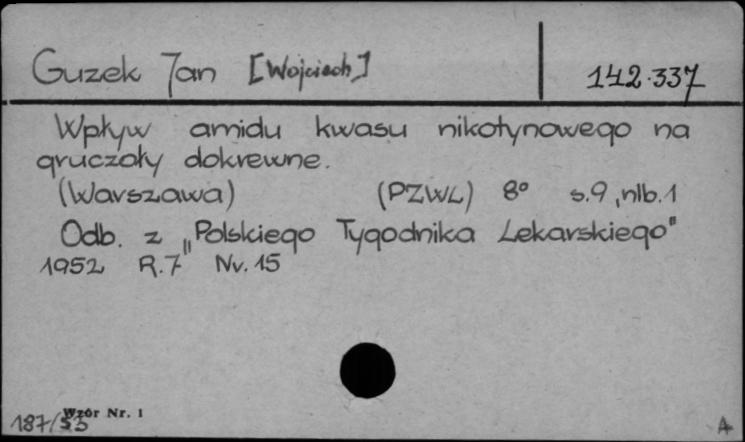 Guzek Jan [Wojciech]
142.337
Wpływ amidu kwasu nikotynowego na
gruczoły dokrewne.
(Warszawa) (PZWL) 8° s.9, nlb.1
Odb. z „Polskiego Tygodnika Lekarskiego"
1952 R.7 Nr. 15
Wzór Nr. 1
187/53
A